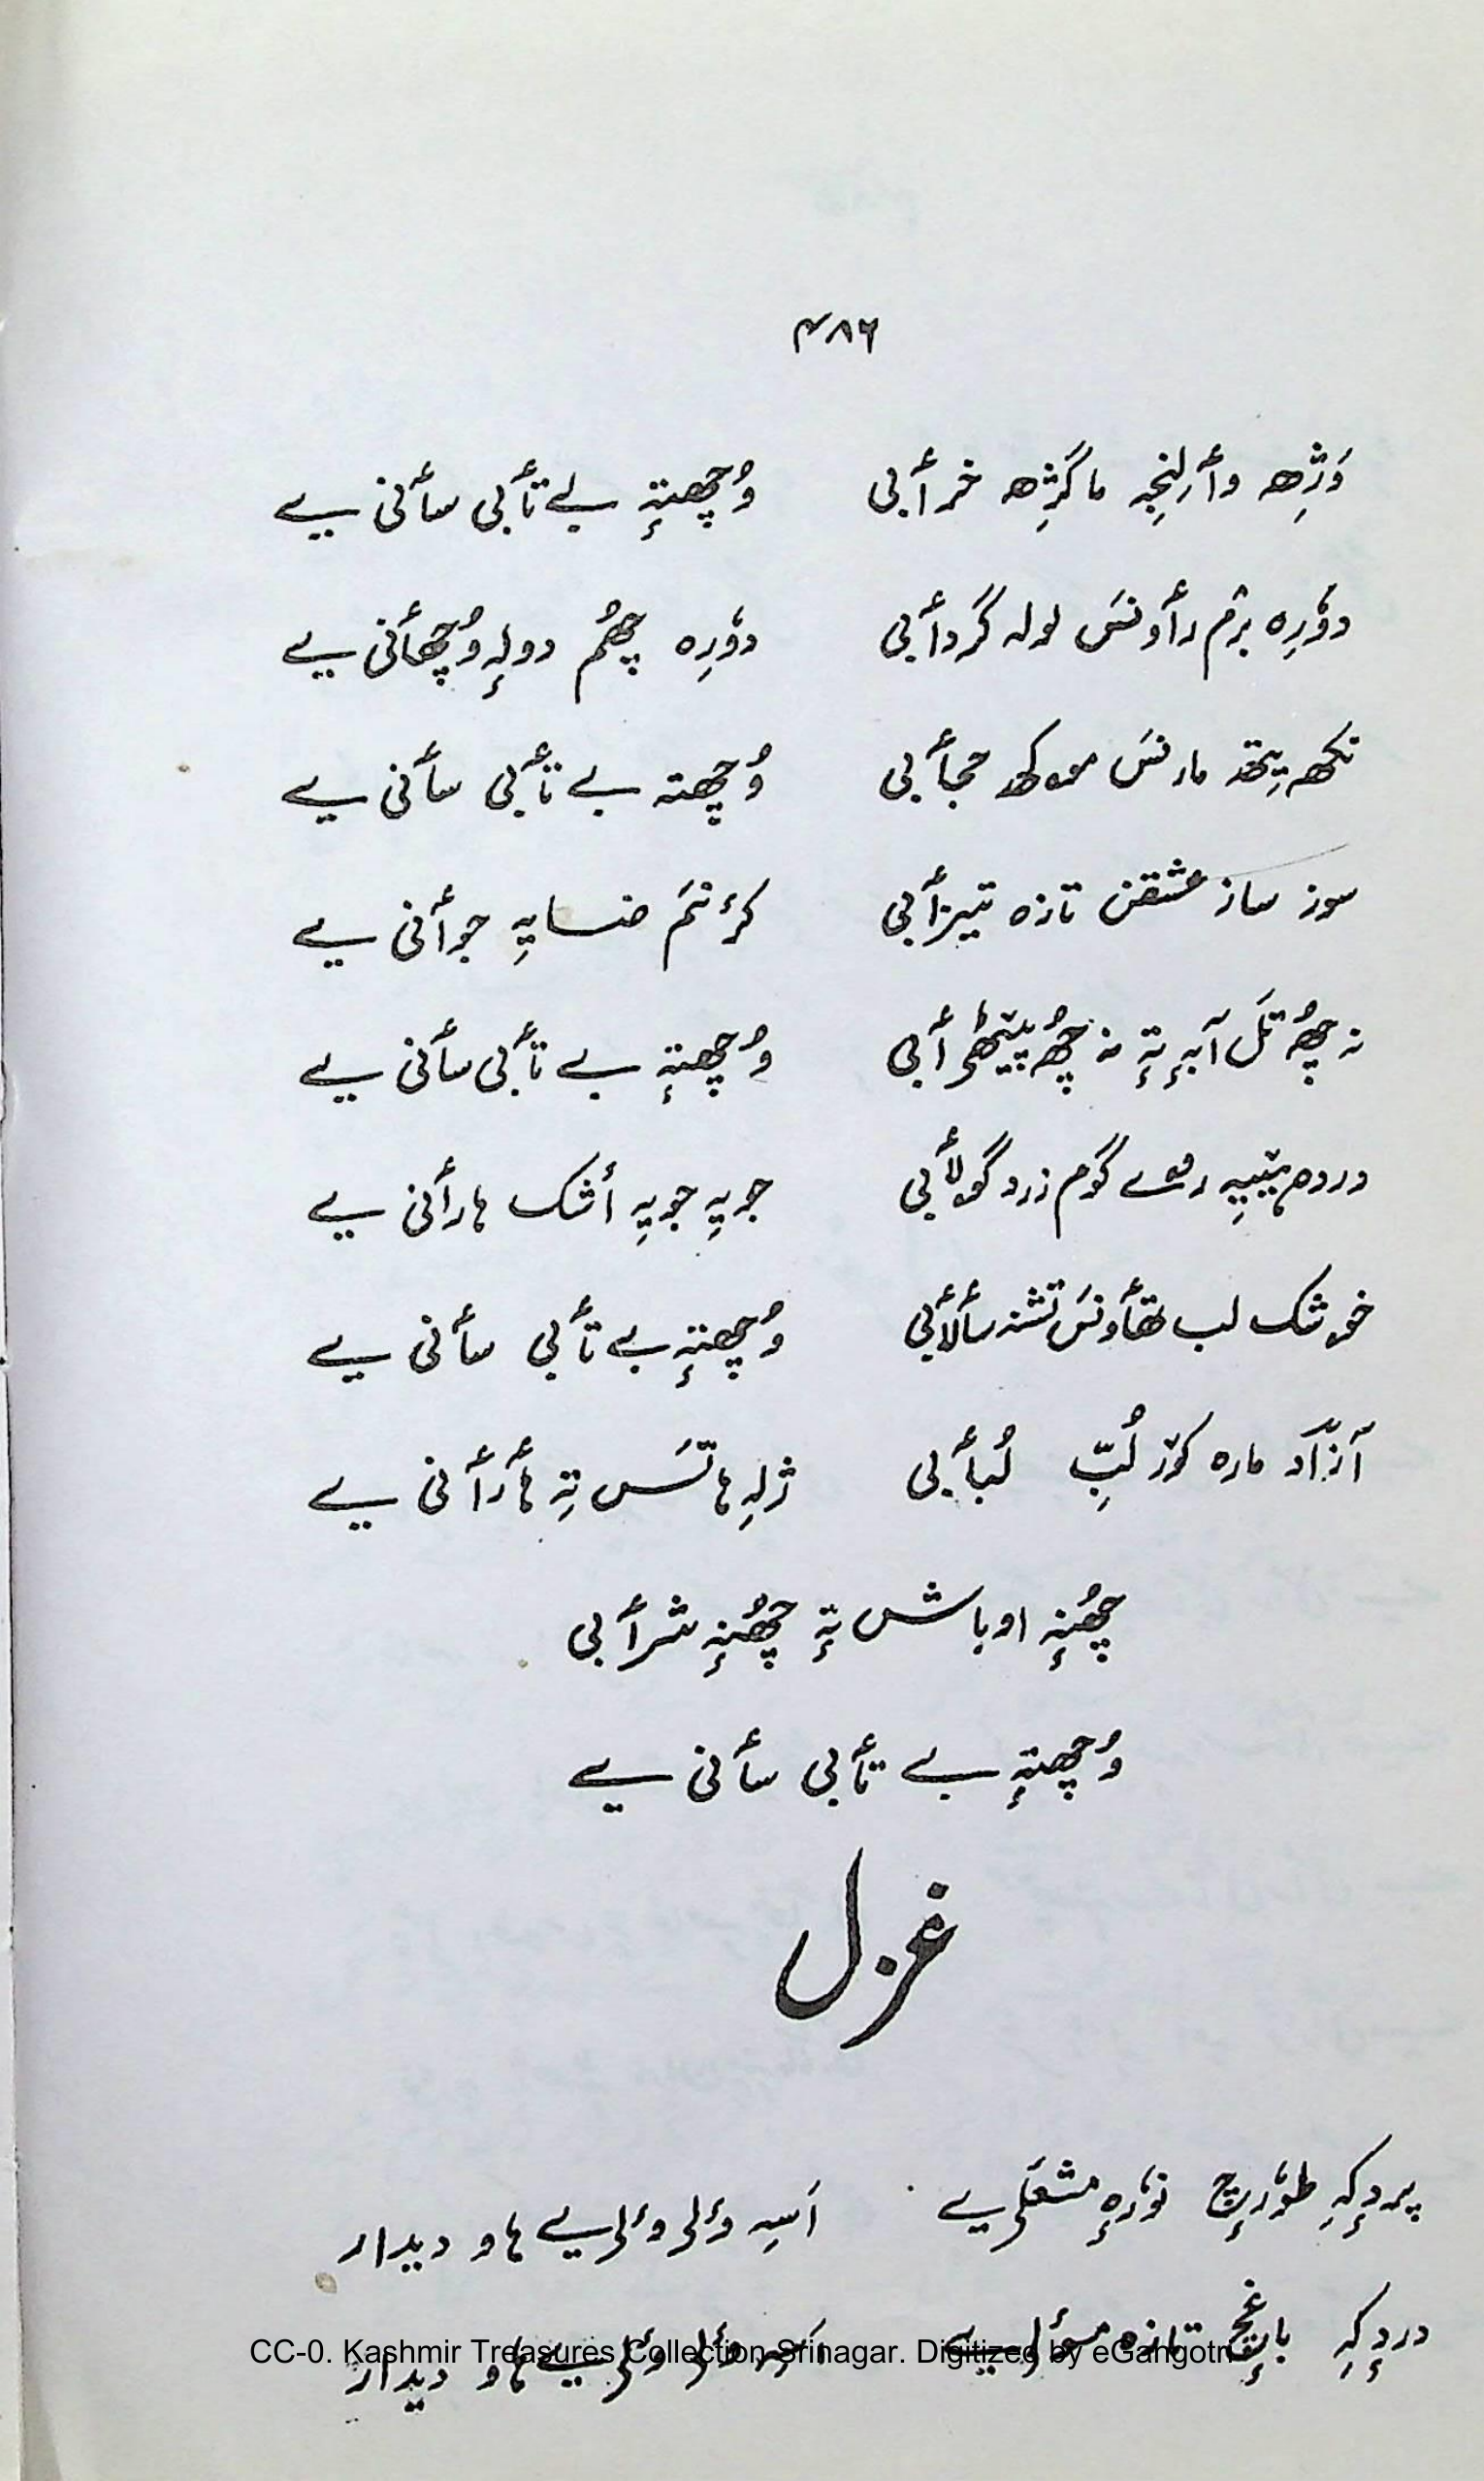 ۴۸۶
وَژِھ وأرلِنجہِ ما گژِھ خرأبی وُچھتہٕ بے تأبی سأنی یے
دوٗرِہ برٛم رأونسَ لولہ گردأبی دوٗرِہ چھُم دولہٕ وُچھأنی یے
نکھہ یِتھ مارنسَ موکھ حجأبی وُچھتہ بے تأبی سأنی یے
سوز ساز عشقن تازہ تیزأبی کرٔنمَ ضسایہِ جوأنی یے
نہ چھُ تَل آبہٕ تہٕ نہ چھُ پیٹھٕ أبی وُچھتہٕ بے تأبی سأنی یے
دردہ ہیٚبیہِ روے گوم زرد گولأبی جویہِ جویہِ أشک ہارأنی یے
خوشک لب تھأونسَ تشنہ سألأبی وُچھتہٕ بے تأبی سأنی یے
آزآد مارہ کوٚر لُبِّ لُبأبی ژلہِ ہاتَس تہِ ہأرأنی یے
چھُنہٕ اوباش تہٕ چھُنہٕ شرأبی
وُچھتہٕ بے تأبی سأنی یے
غزل
پردٕکہِ طوٗرٕچ نوٗرٕہ مشعَلی یے اَسہِ وٕلی وٕلی یے ہاو دیدار
دردٕکہِ باغٕچ تازہ یے اَسہِ وٕلی وٕلی یے ہاو دیدار
CC-0. Kashmir Treasures Collection Srinagar. Digitized by eGangotri